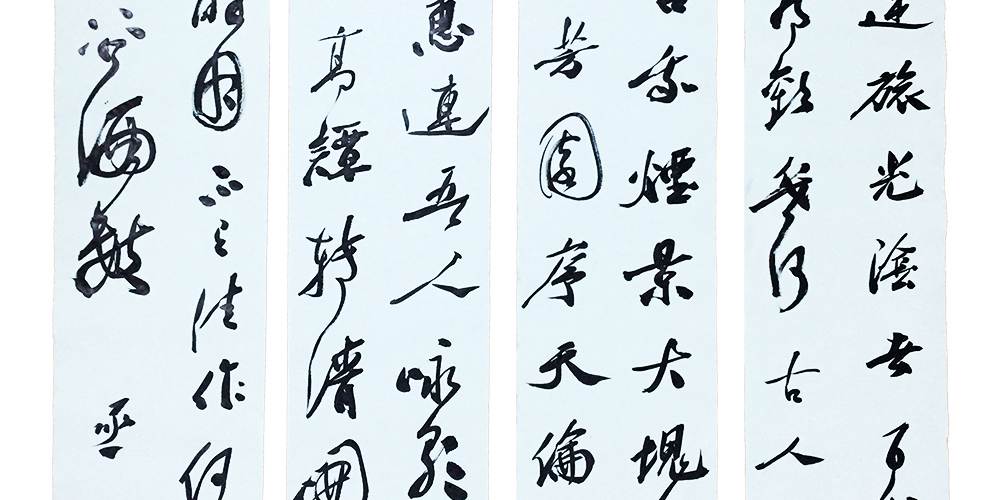 逆旅光陰者百
為歡幾何古人
召我煙景大塊
芳園序天倫
惠連吾人詠歌
高譚轉清開
月不有佳作何
谷酒數
丞